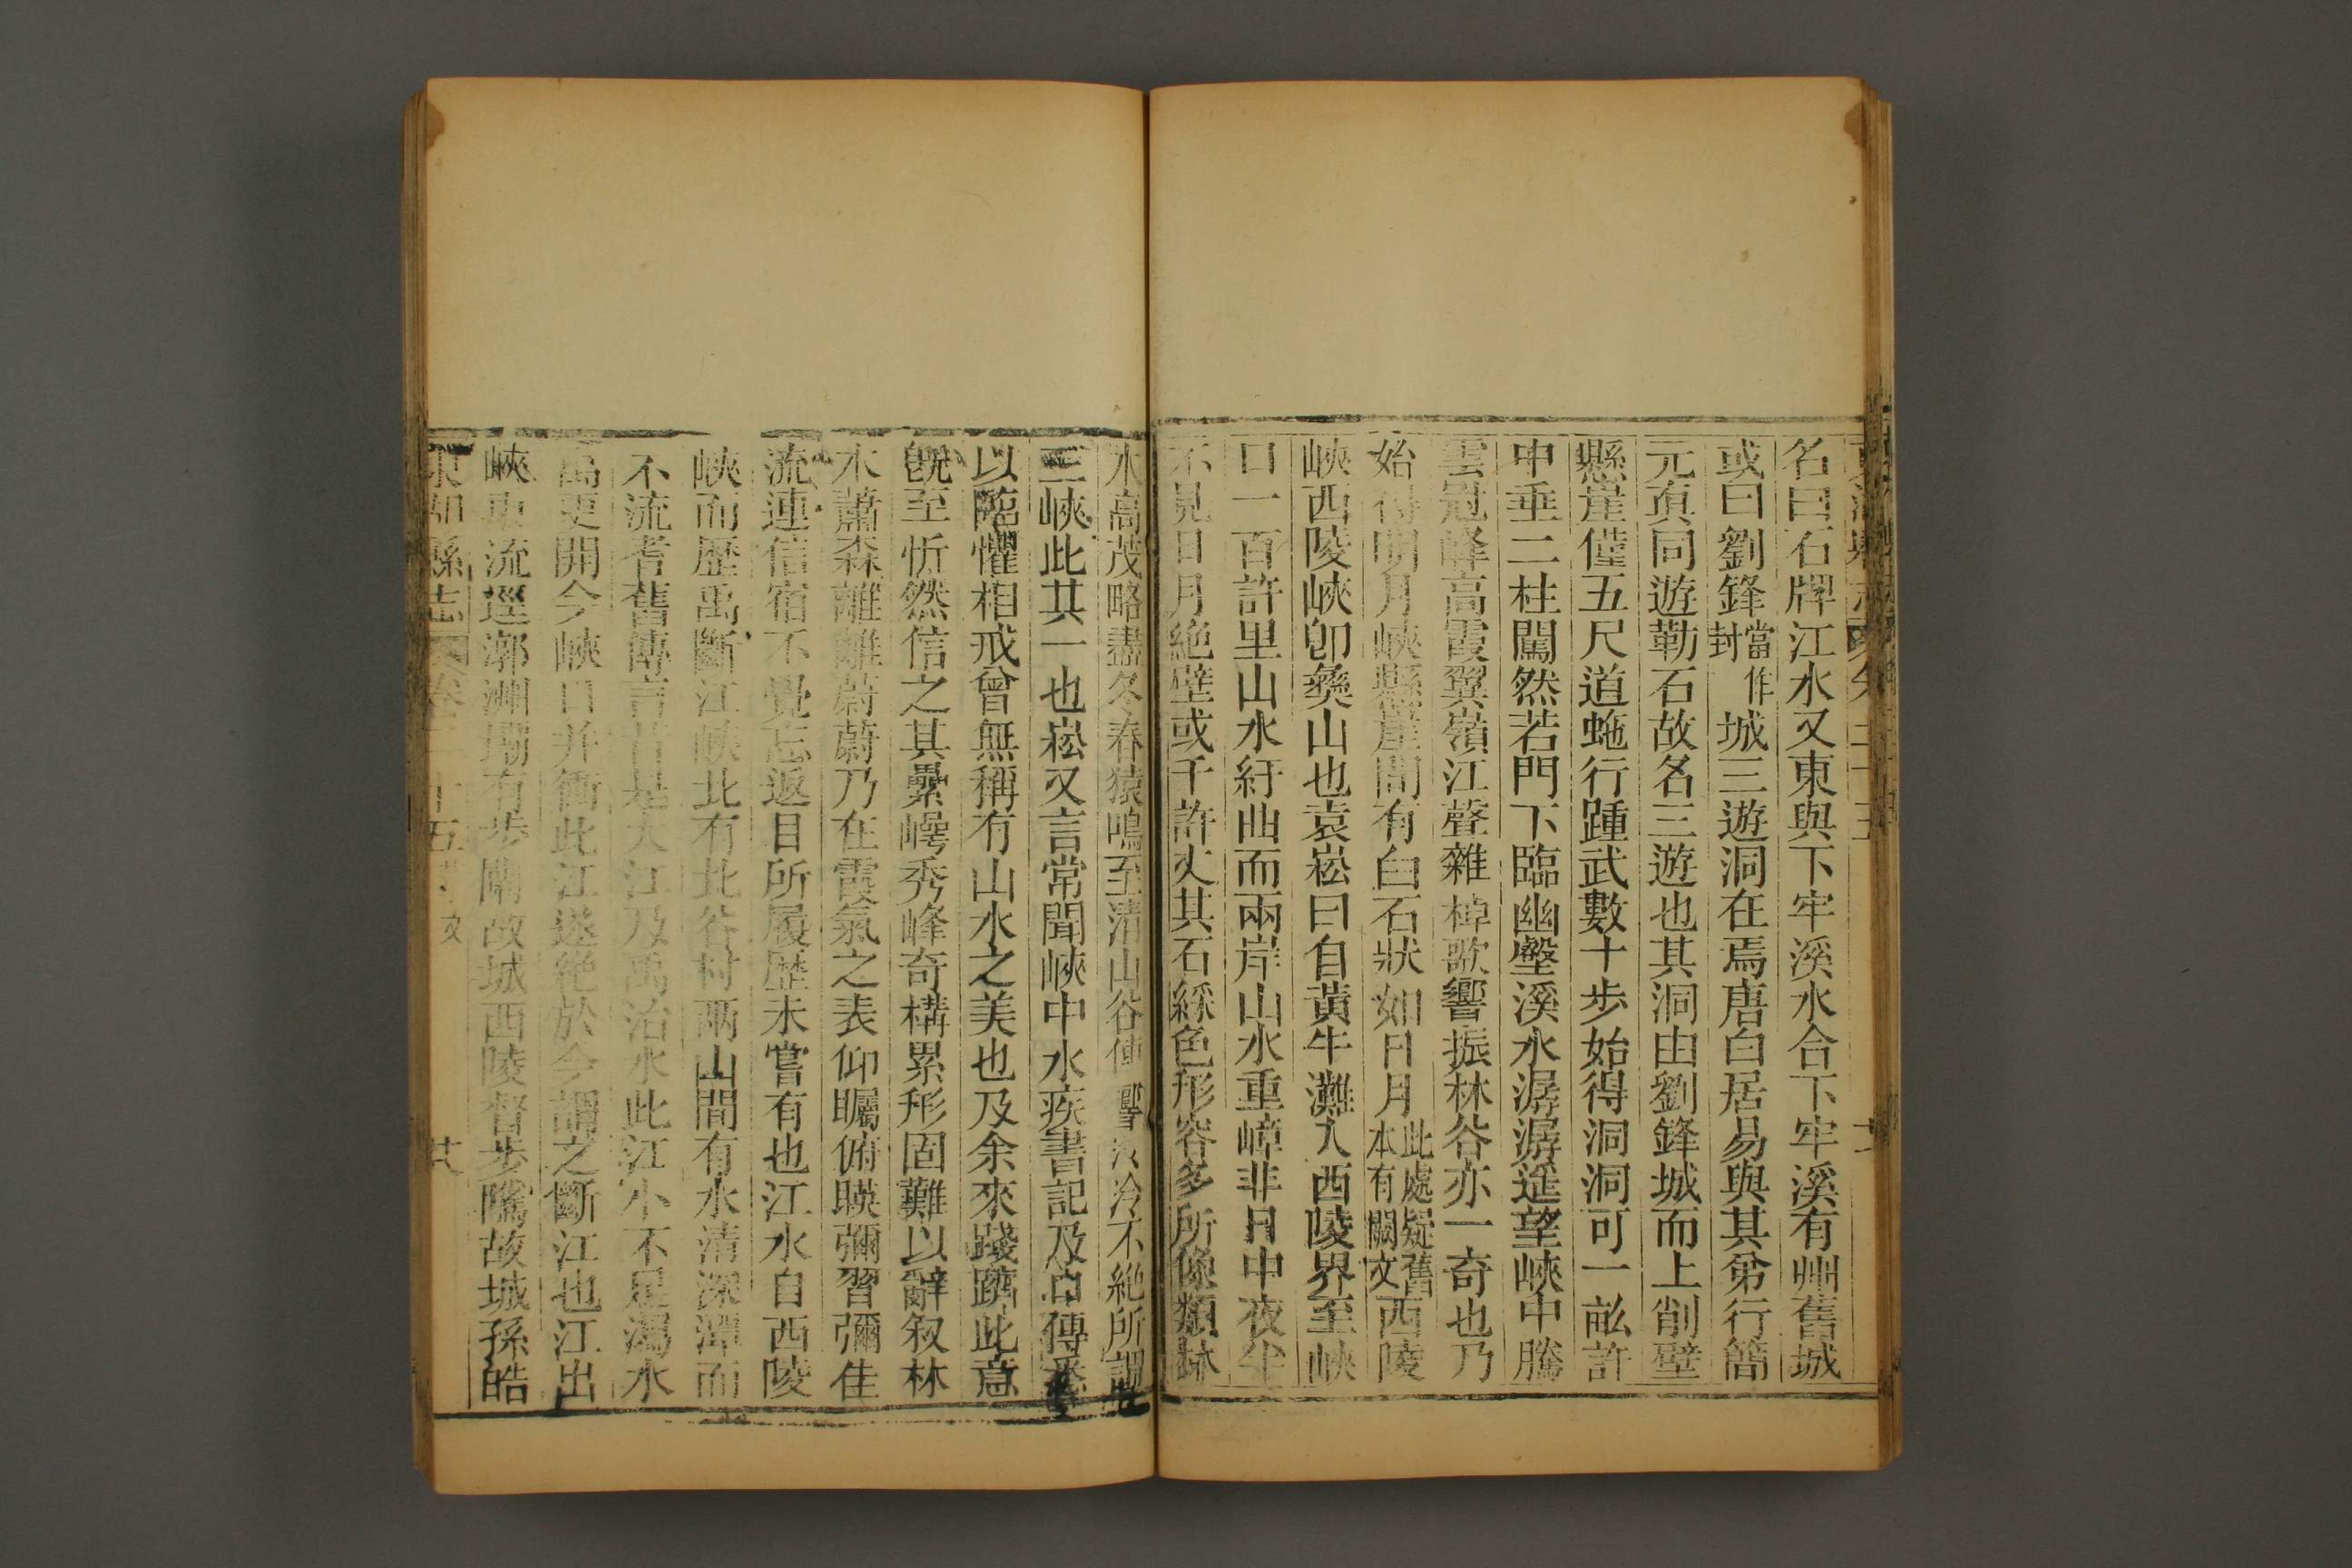 名曰石牌江水又東與下牢溪水合下牢溪有州舊城
或曰劉鋒當作封城三遊洞在焉唐白居易與其弟行簡
元眞同遊勒石故名三遊也其洞由劉鋒城而上削壁
懸崖僅五尺道虵行踵武數十步始得洞洞可一畝許
中垂二柱闖然若門下臨幽壑溪水潺潺遥望峽中騰
雲冠峰高霞翼嶺江聲雜棹歌響振林谷亦一奇也乃
始得明月峽懸崖間有白石狀如日月此處疑舊本有闕文西陵
峽西陵峽卽彝山也袁崧曰自黃牛灘入西陵界至峽
口一百許里山水紆曲而兩岸山水重嶂非日中夜半
不見日月絶壁或千許丈其石綵色形容多所像類林
木高茂略盡冬春猿鳴至清山谷傳響泠泠不絶所謂
三峽此其一也崧又言常聞峽中水疾書記及口傳悉
以臨懼相戒曾無稱有山水之美也及余來踐躋此意
旣至忻然信之其疊崿秀峰奇構累形固難以辭叙林
木蕭森離離蔚蔚乃在霞氣之表仰矚俯暎彌習彌佳
流連信宿不覺忘返目所履歷未嘗有也江水自西陵
峽而歷禹斷江峽北有北谷村兩山間有水清深潭而
不流耆舊傳言昔是大江乃禹治水此江小不足瀉水
禹更開今峽口并衝此江遂絶於今謂之斷江也江出
峽東流逕郭洲有步闡故城西陵督步隲故城孫皓
東湖縣志 卷二十五 文 廿